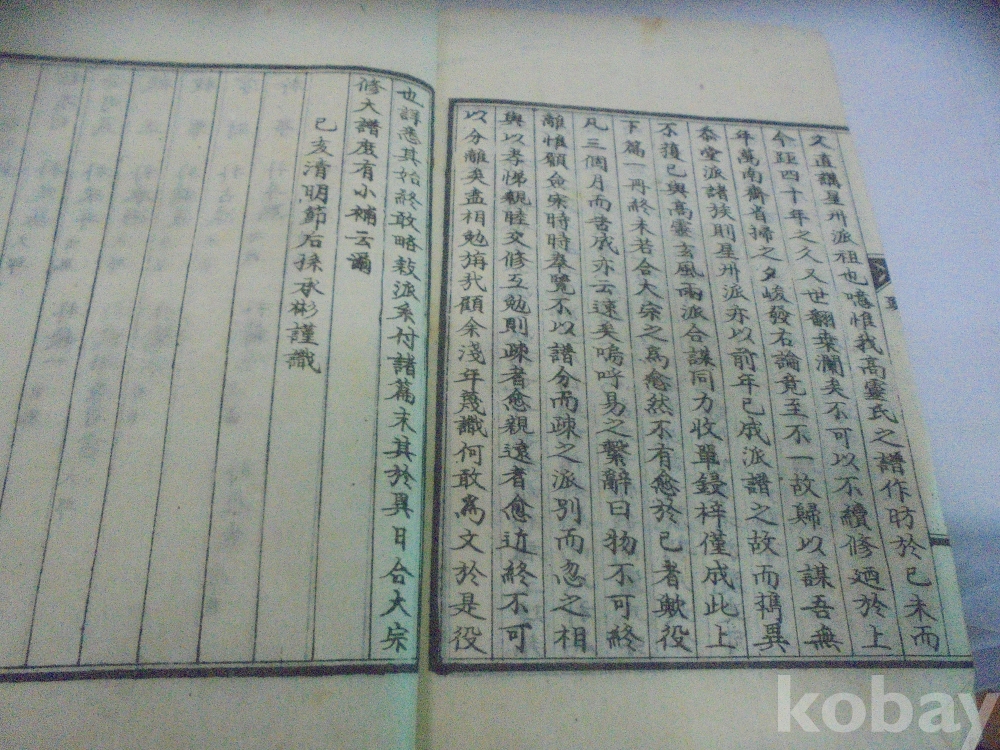 文道講星州派祖也噫惟我高靈氏之譜作昉於己未而
今距四十年之久又世翻桑瀾矣不可以不續修廼於上
年萬南齋省掃之夕峻發右論竟至不一故歸以謀吾無
忝堂派諸族則星州派亦以前年已成派譜之故而携異
不獲已與高靈玄風兩派合謀同力收單鋟梓僅成此上
下篇一再終未若合大宗之爲愈然不有愈於已者歟役
凡三個月而告成亦云遠矣嗚呼易之繫辭曰物不可終
離惟願僉宗時時奉覽不以譜分而疎之派別而忽之相
與以孝悌親睦交修互勉則疎者愈親遠者愈近終不可
以分離矣盍相勉旃哉顧余淺年蔑識何敢爲文於是役
也詳悉其始終敢略敍派系付諸篇末其於異日合大宗
修大譜庶有小補云爾
己亥清明節后孫承彬謹識
kobay